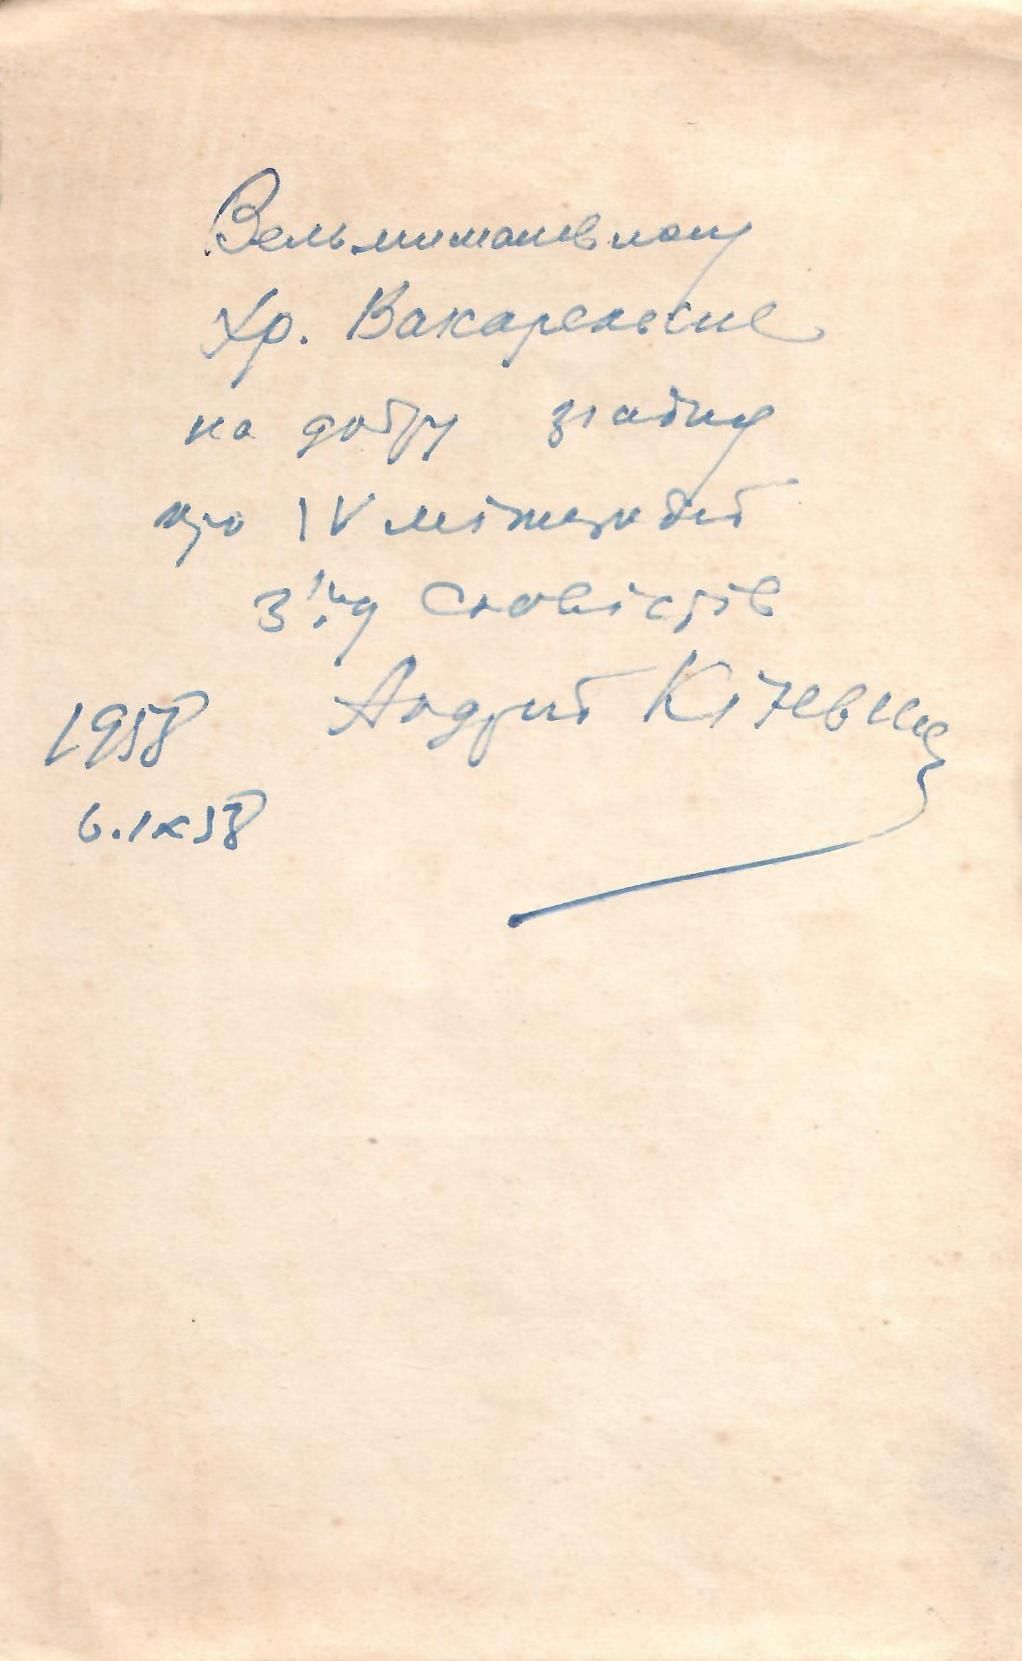 Вельмишановному
Хр. Вакарельские
на добру згадку
про IV міжнародній
з'їзд славістів
Андрій
1958
6.IX 58